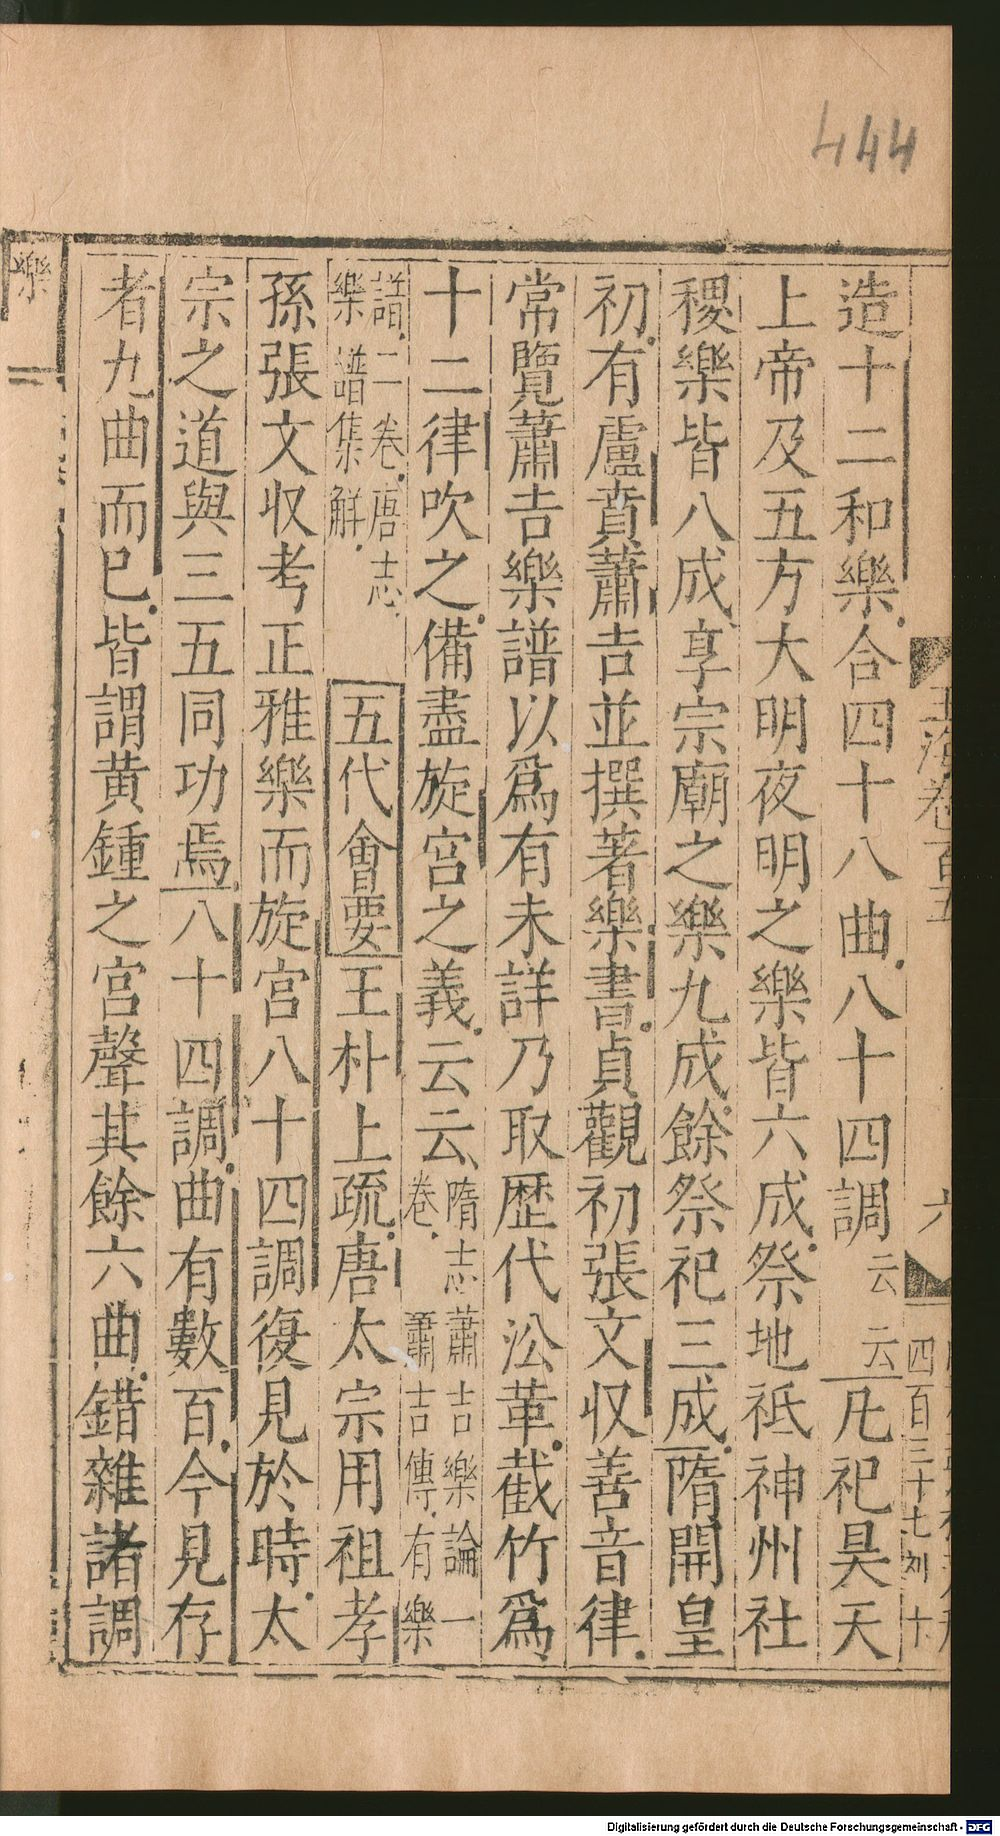 444
玉海卷百五
六
四百三十七 刘 十
造十二和樂合四十八曲八十四調云云凡祀昊天
上帝及五方大明夜明之樂皆六成祭地祗神州社
稷樂皆八成享宗廟之樂九成餘祭祀三成隋開皇
初有盧賁蕭吉並撰著樂書貞觀初張文収善音律
常覽蕭吉樂譜以爲有未詳乃取歷代㳂革截竹爲
十二律吹之備盡旋宫之義云云隋志蕭吉樂論一卷蕭吉傳有樂
譜二卷唐志樂譜集解五代會要王朴上疏唐太宗用祖孝
孫張文収考正雅樂而旋宫八十四調復見於時太
宗之道與三五同功焉八十四調曲有數百今見存
者九曲而已皆謂黄鍾之宫聲其餘六曲錯雜諸調
樂
Digitalisierung gefördert durch die Deutsche Forschungsgemeinschaft - DFG